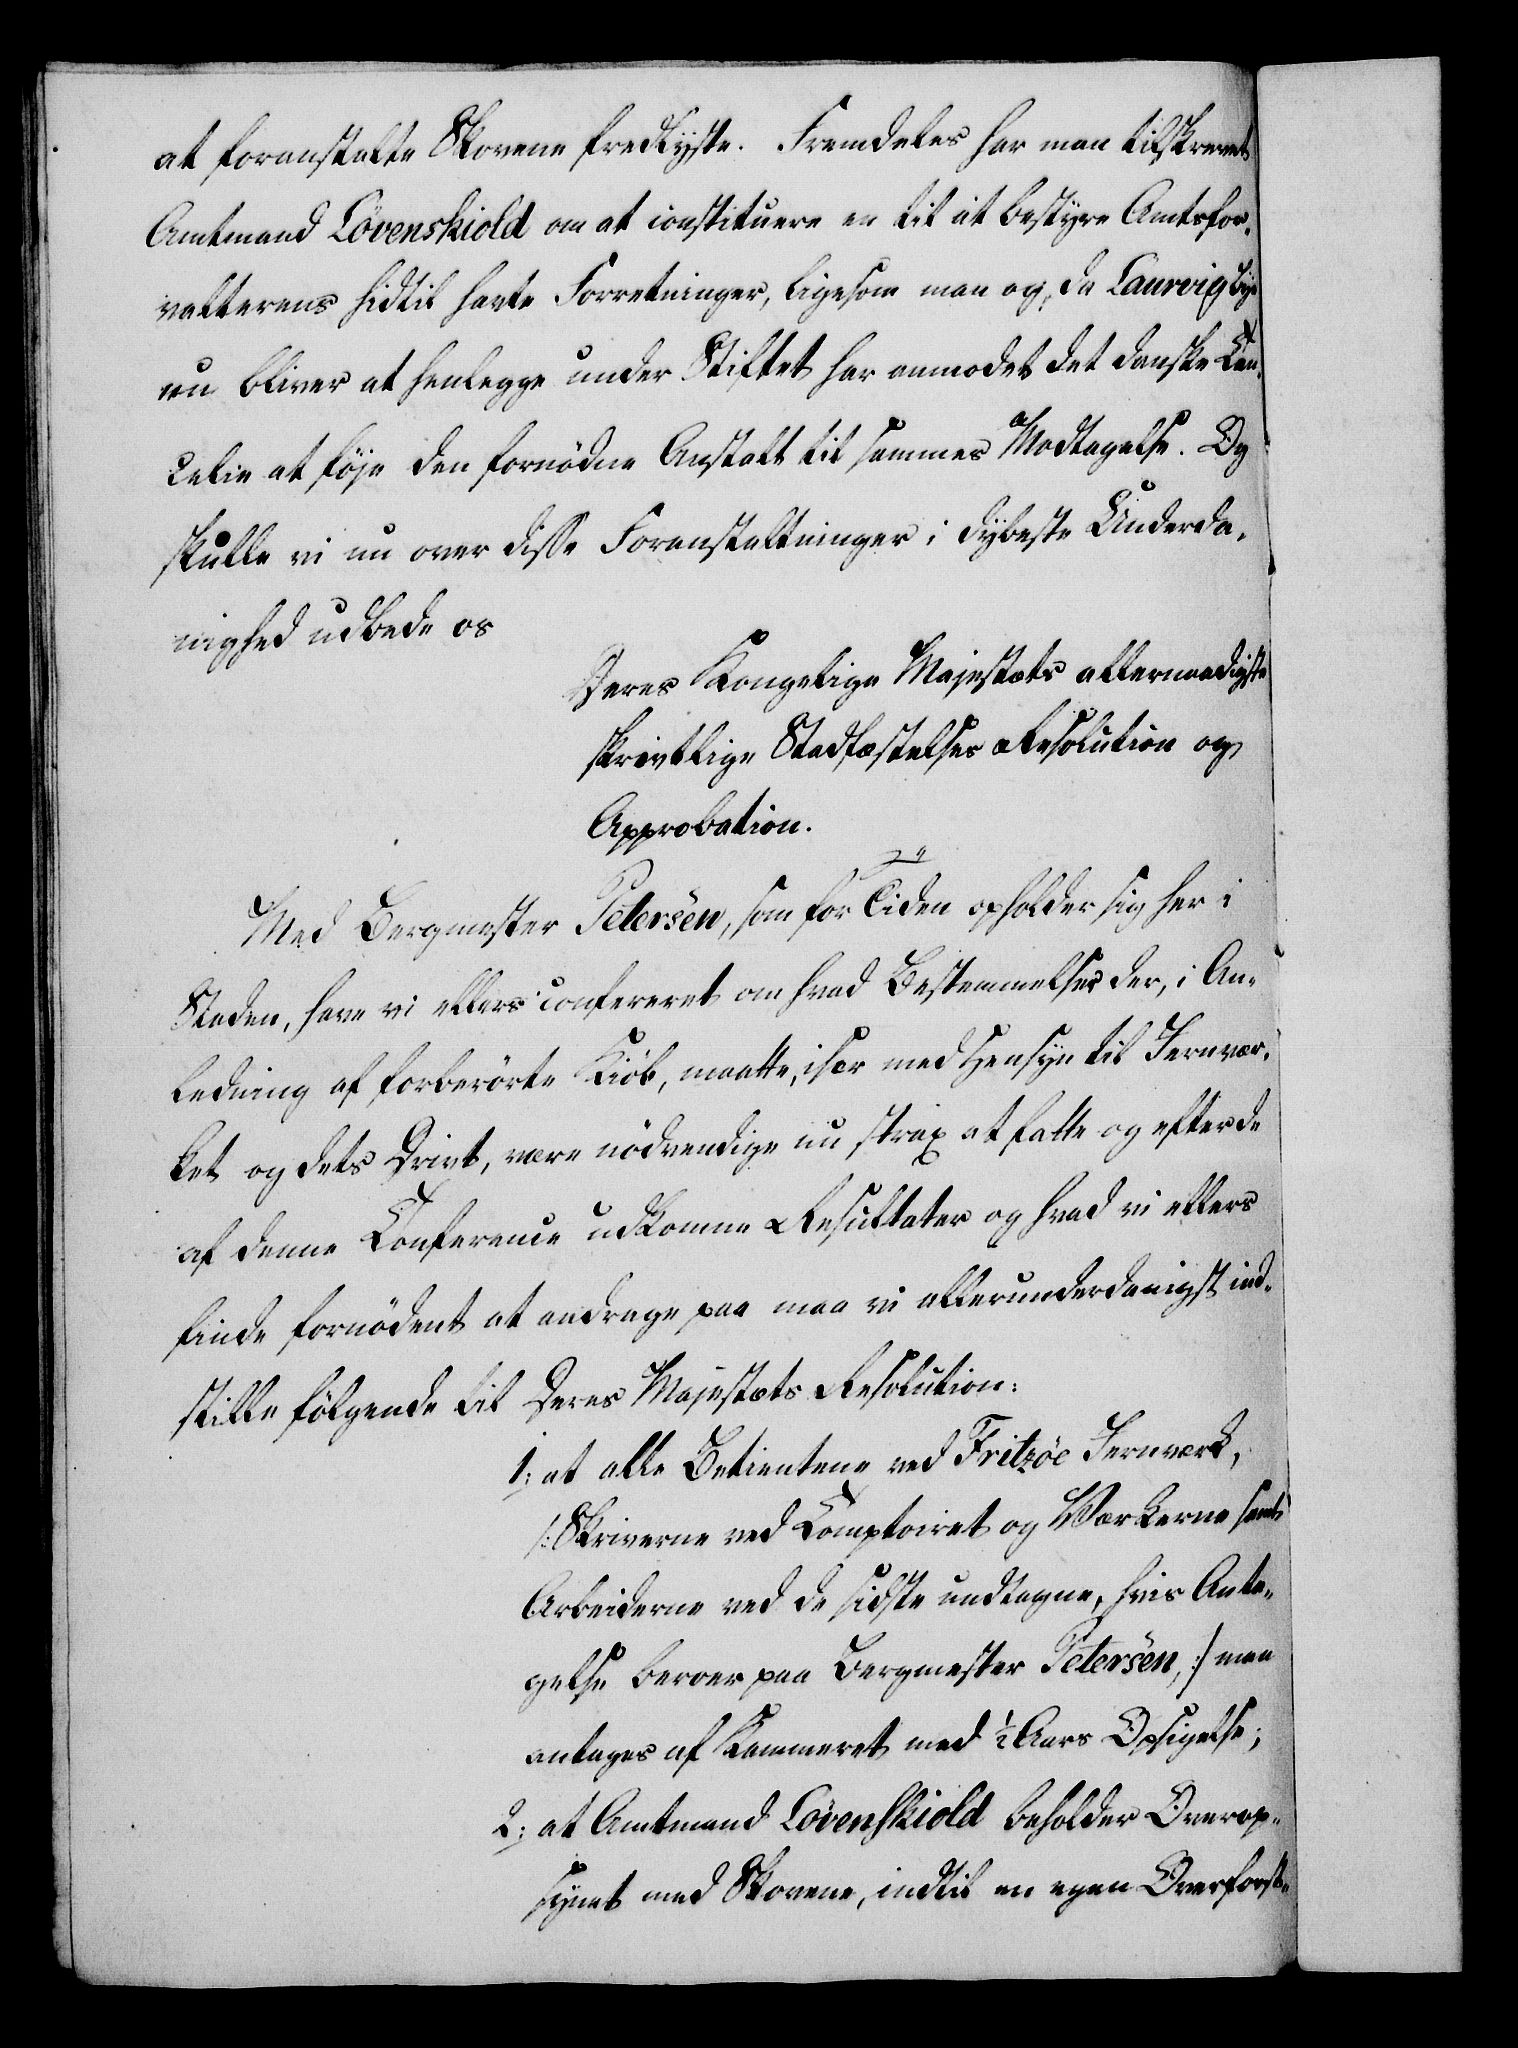 at foranstalte Skovene fredlyste. Fremdeles har man tilskrevet
Amtmand Lövenskiold om at constituere en til at bestyre Amtsfor-
valterens hidtil havte Forretninger, ligesom man og, da Laurvig bye
nu bliver at henlegge under Stiftet har anmodet det danske Can-
celie at föje den fornödne Anstalt til sammes Modtagelse. Og
skulle vi nu over disse Foranstaltninger i dybeste Underda-
nighed udbede os
Deres Kongelige Majestæts allernaadigste
skrivtlige Stadfæstelses Resolution og
Approbation.
Med Bergmester Petersen, som for Tiden opholder sig her i
Staden, have vi ellers confereret om hvad Bestemmelser der, i An-
ledning af forberörte Kiöb, maatte, især med Hensyn til Jernvær-
ket og dets Drivt, være nödvendige nu strax at fatte og efter de
af denne Conference udkomne Resultater og hvad vi ellers
finde fornödent at andrage paa maa vi allerunderdanigst ind-
stille fölgende til Deres Majestæts Resolution:
1; at alle Betientene ved Fritzöe Jernværk,
/: Skriverne ved Comptoiret og Værkerne samt
Arbeiderne ved de sidste undtagne, hvis Anta-
gelse beroer paa Bergmester Petersen, :/ maa
antages af Kammeret med ½ Aars Opsigelse;
2; at Amtmand Lövenskiold beholder Overop-
synet med Skovene, indtil en egen Overforst-